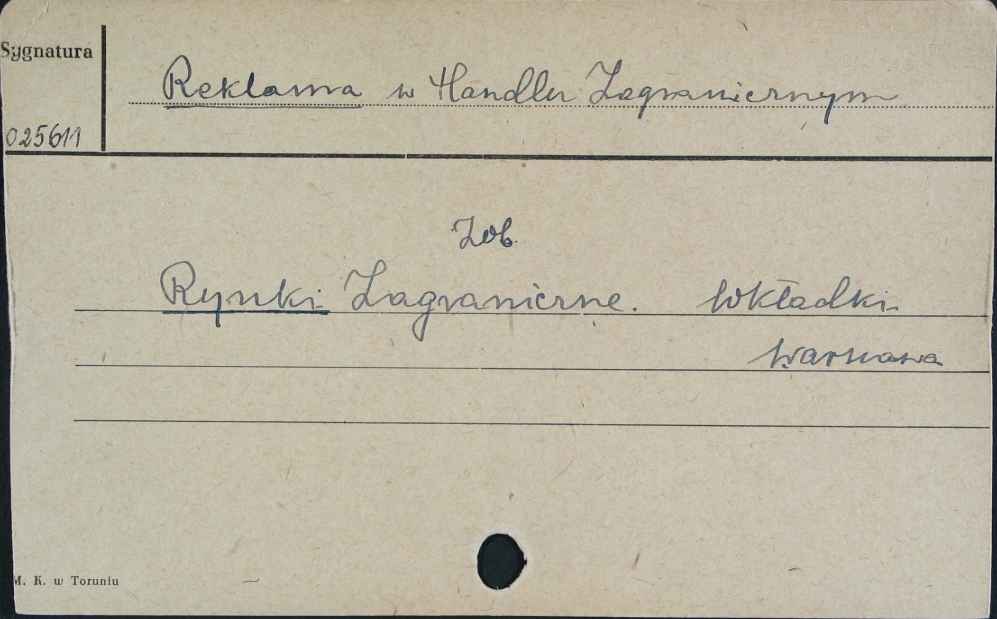 Sygnatura
Reklama w Handlu Zagranicznym
025611
Zob.
Rynki Zagraniczne. Wkładki
Warszawa
M. K. w Toruniu